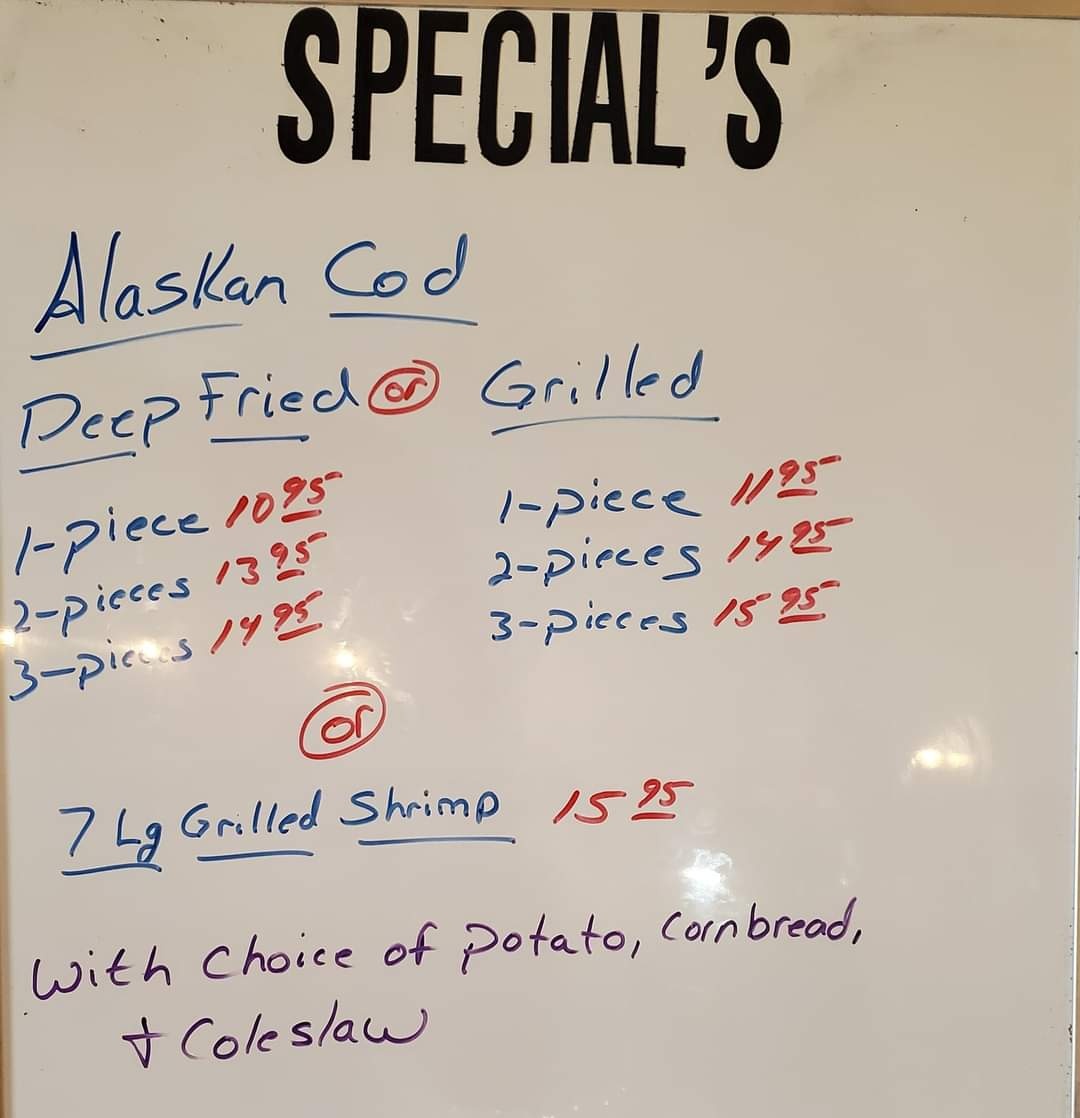 SPECIAL'S
Alaskan Cod
Deep Fried or Grilled
1-piece 10 95
2-pieces 13 95
3-pieces 14 95
1-piece 11 95
2-pieces 14 95
3-pieces 15 95
or
7 Lg Grilled Shrimp 15 95
With Choice of potato, Cornbread,
+ Coleslaw